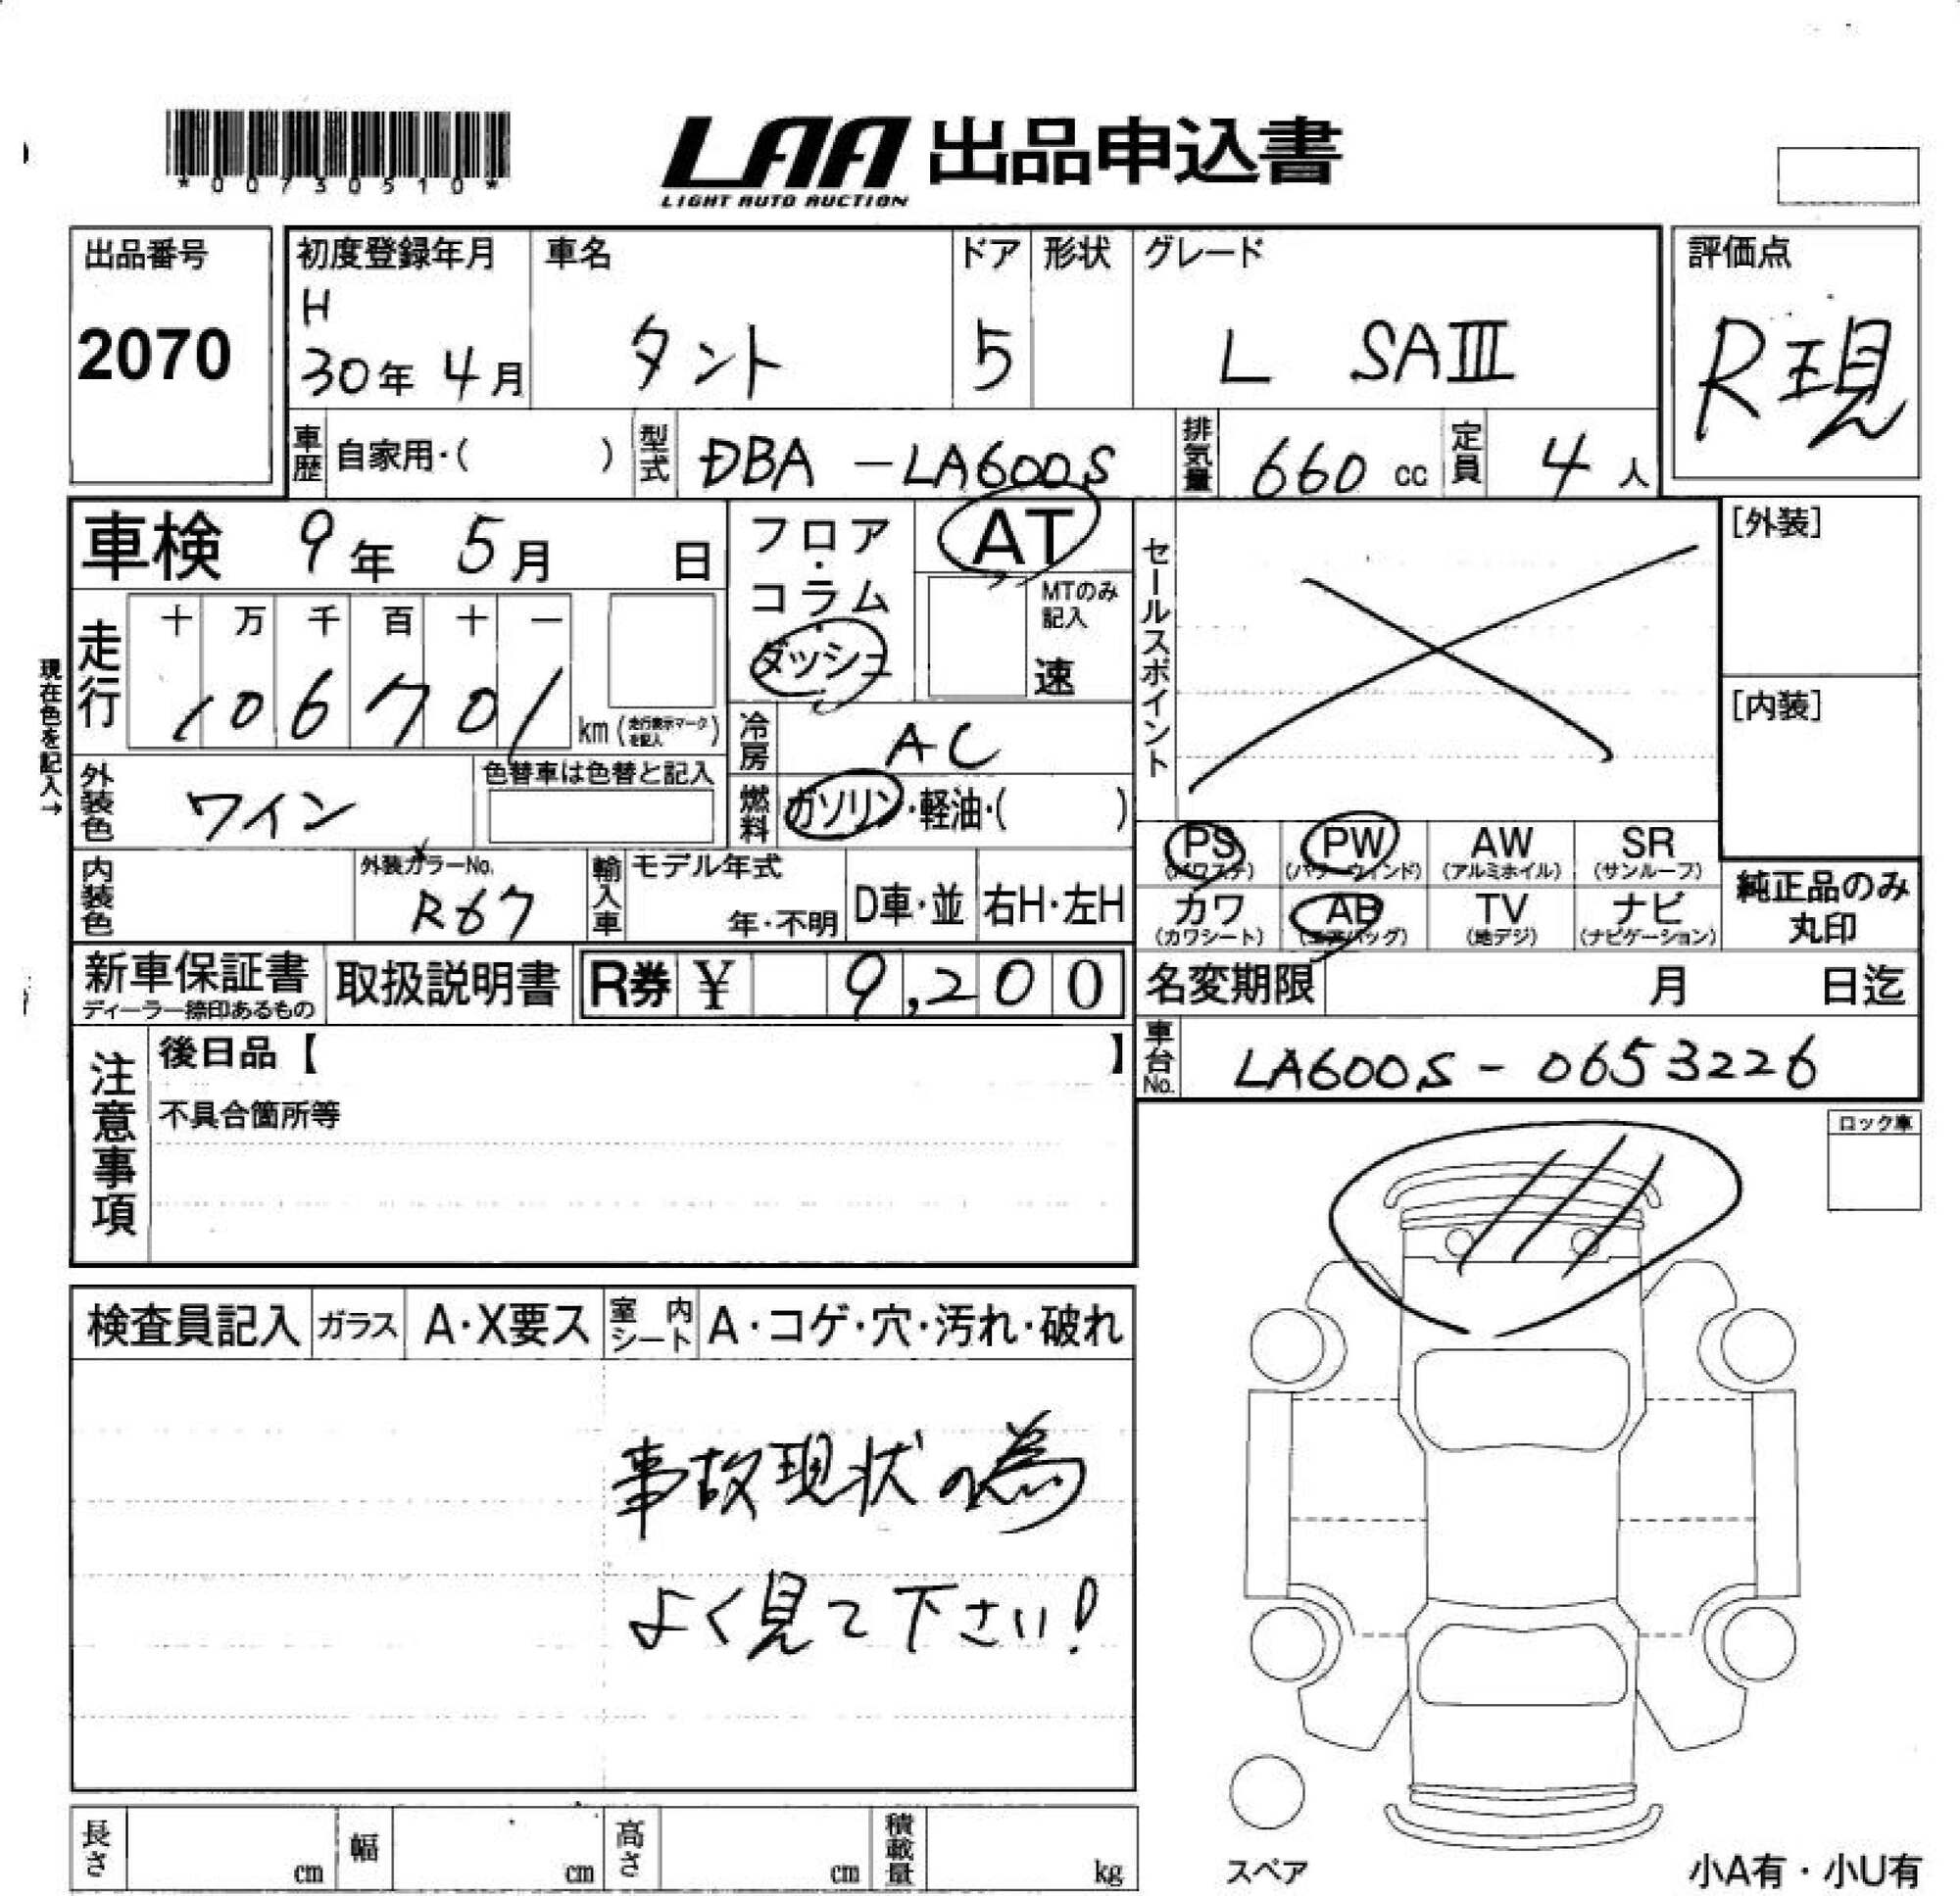 *00730510*
LAA 出品申込書
LIGHT AUTO AUCTION
出品番号
2070
初度登録年月
H
30年 4月
車名
タント
ドア
5
形状
グレード
L SAⅢ
評価点
R現
車歴
自家用・( )
型式
DBA -LA600S
排気量
660 cc
定員
4 人
車検 9年 5月 日
フロア・コラム・ダッシュ
AT
MTのみ記入
速
セールスポイント
[外装]
[内装]
現在色を記入→
走行
十 万 千 百 十 一
1 0 6 7 0 1
km (走行表示マークを記入)
冷房
AC
外装色
ワイン
色替車は色替と記入
燃料
ガソリン・軽油・( )
PS (パワステ)
PW (パワーウィンド)
AW (アルミホイル)
SR (サンルーフ)
カワ (カワシート)
AB (エアバッグ)
TV (地デジ)
ナビ (ナビゲーション)
純正品のみ
丸印
内装色
外装カラーNo.
R67
輸入車
モデル年式
年・不明
D車・並
右H・左H
新車保証書
ディーラー捺印あるもの
取扱説明書
R券 ¥ 9,200
名変期限 月 日迄
車台No.
LA600S - 0653226
注意事項
後日品【 】
不具合箇所等
ロック車
検査員記入
ガラス
A・X要ス
室内シート
A・コゲ・穴・汚れ・破れ
事故現状の為
よく見て下さい!
長さ cm
幅 cm
高さ cm
積載量 kg
スペア
小A有・小U有